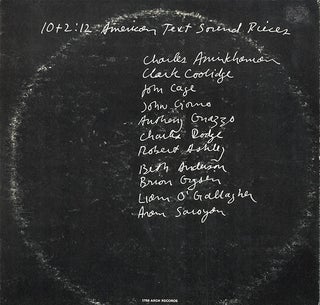 10+2: 12 American Text Sound Pieces
Charles Amirkhanian
Clark Coolidge
John Cage
John Giorno
Anthony Gnazzo
Charles Dodge
Robert Ashley
Beth Anderson
Brion Gysin
Liam O'Gallagher
Aram Saroyan
1750 ARCH RECORDS